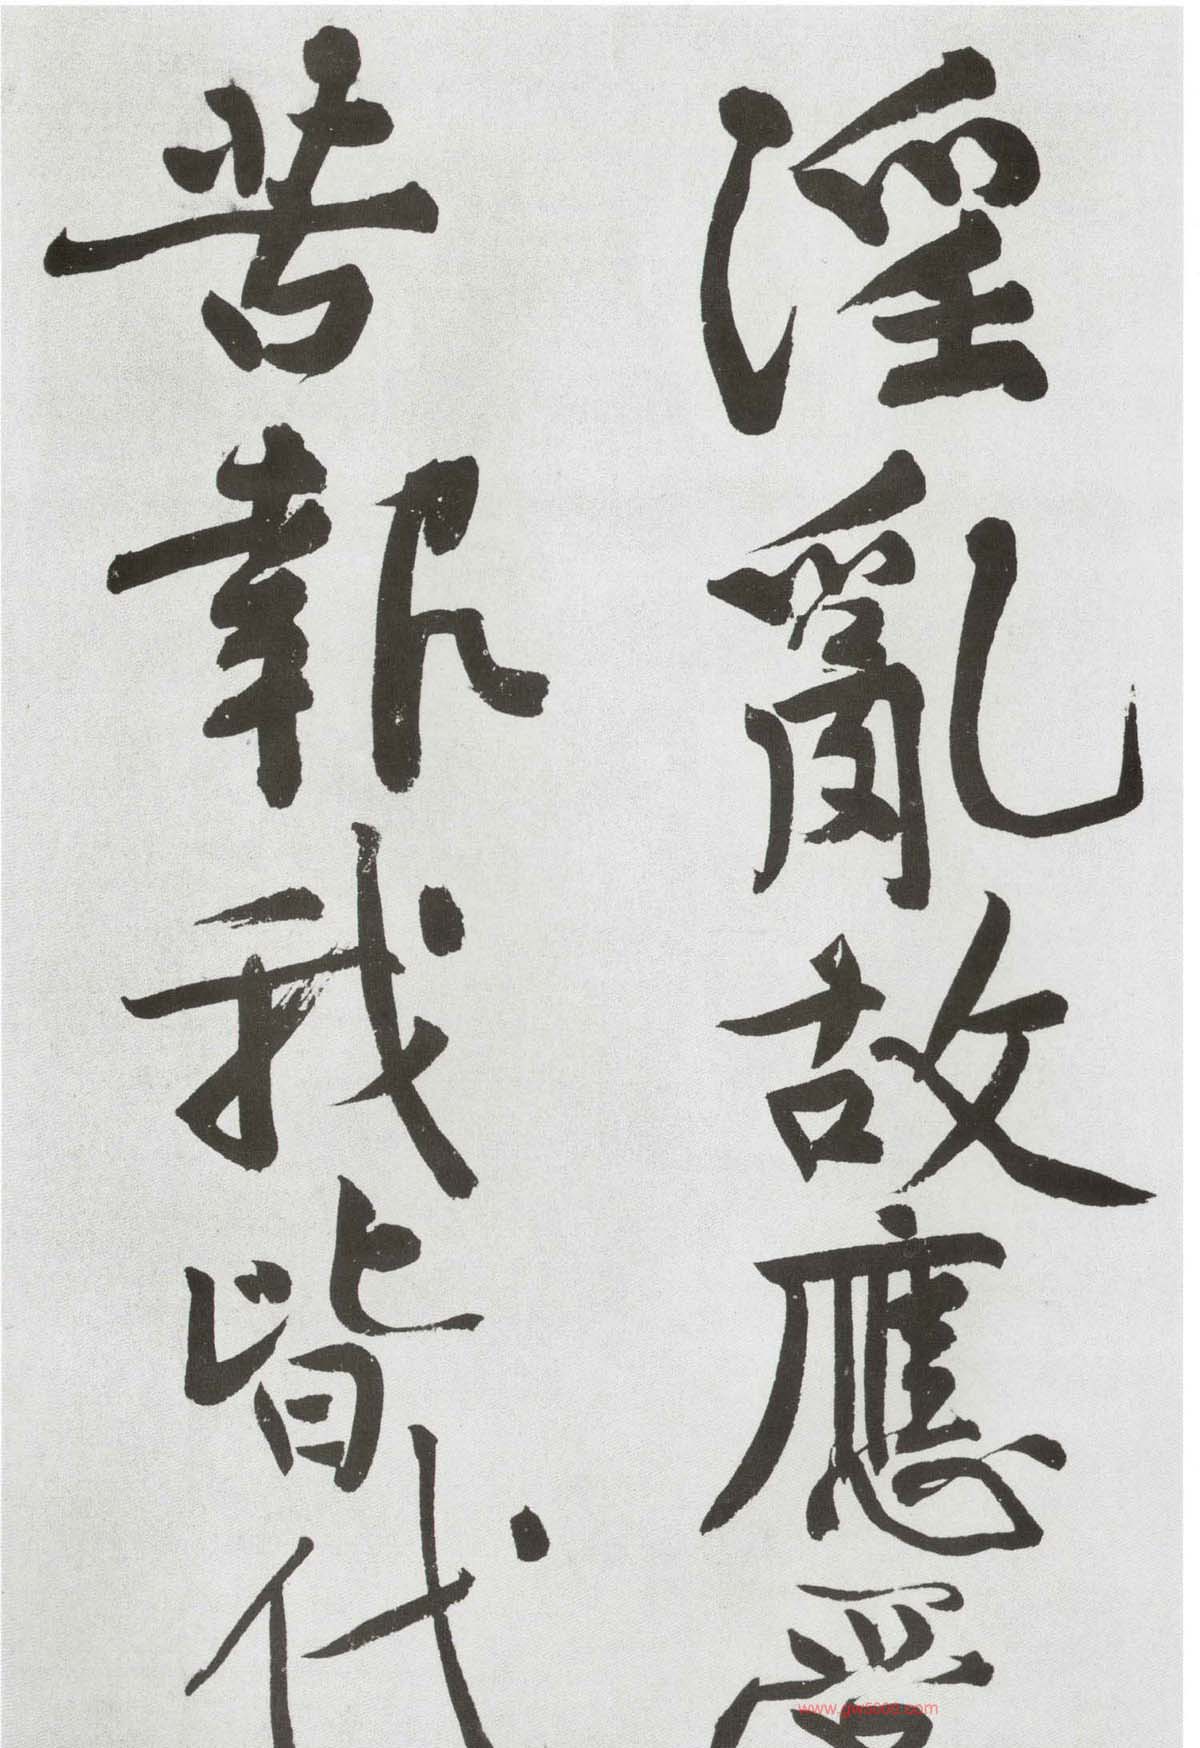 淫亂故應受
苦報我皆代
www.gw5000.com